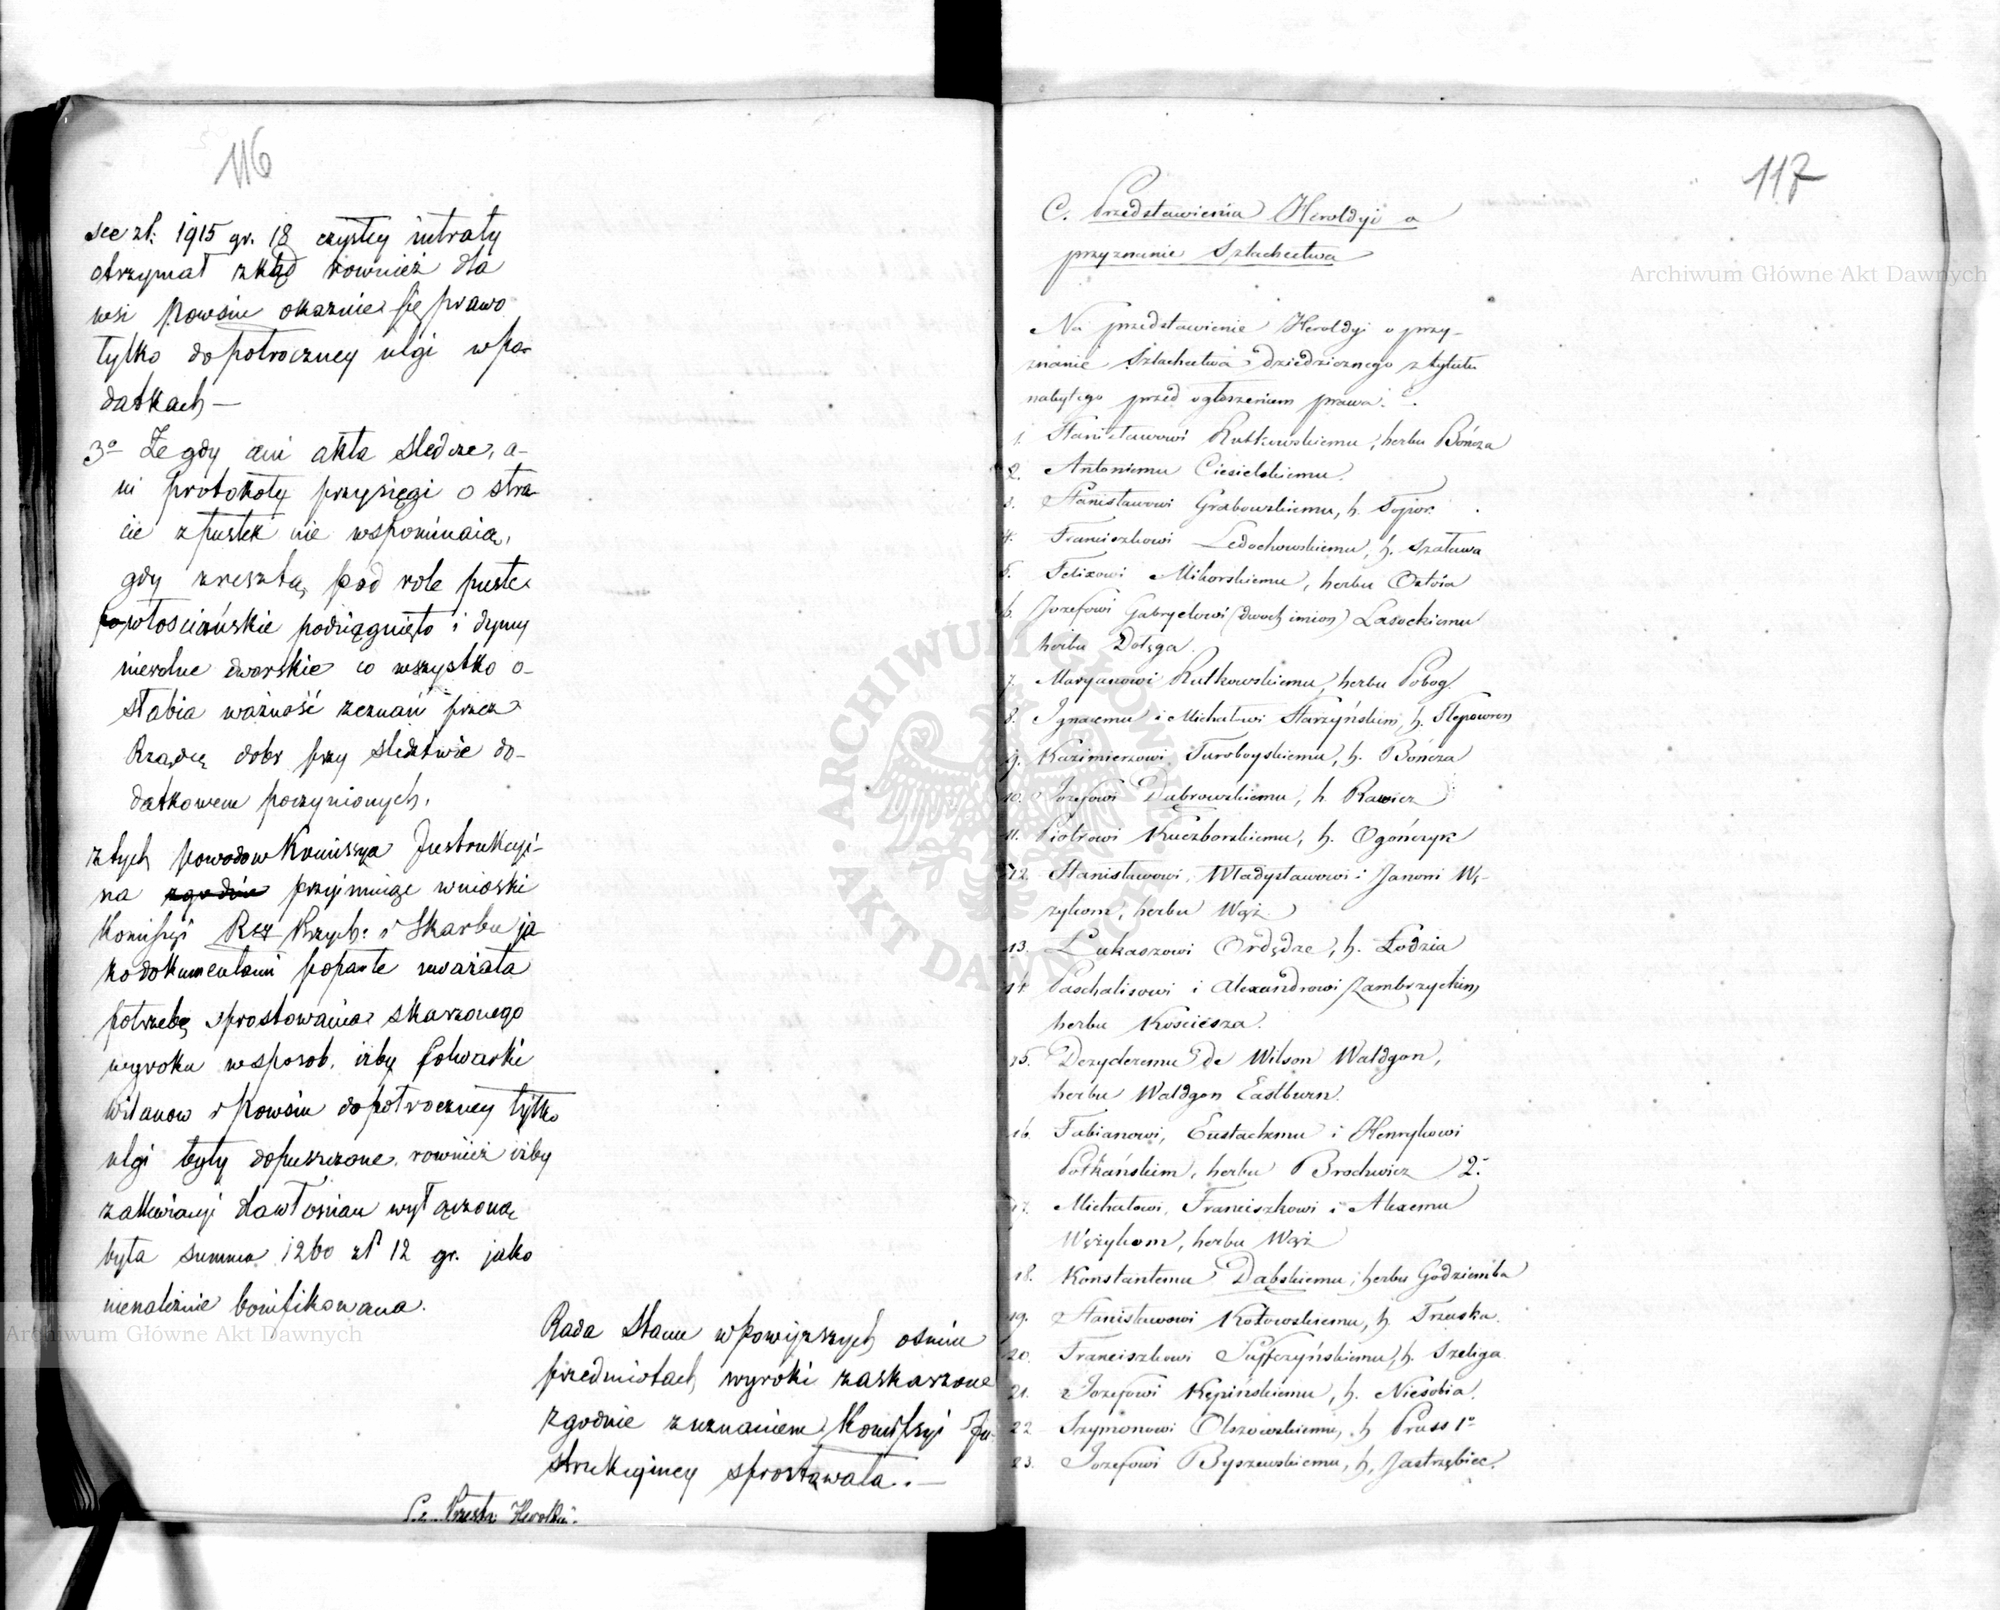 116
see zł: 1915 gr. 18 czystey intraty
otrzymał zkąd rownież dla
wsi Powsin okaznie się prawo
tylko do połroczney ulgi w po-
datkach —
3o Że gdy ani akta śledcze, a-
ni protokoły przysięgi o stra-
cie z pustek nie wspominaią,
gdy zresztą, pod role puste
włościańskie podciągnięto i dymy
niewolne dworskie co wszystko o-
słabia ważność zeznań przez
Rządcę dobr przy śledztwie do-
datkowem poczynionych.
z tych powodow Kommissya Instrukcyi-
na zgodnie przyjmuiąc wnioski
Komissyi Rzą Przych: i Skarbu ja-
ko dokumentami poparte uważała
potrzebę sprostowania skarżonego
wyroku w sposob, iżby folwarki
Wilanow i Powsin do połroczney tylko
ulgi były dopuszczone, rownież iżby
z alkwiacyi Zawłosian wyłączoną
była summa 1260 zł 12 gr. jako
nienależnie bonifikowana.
Rada Stanu w powyższych ośmiu
przedmiotach wyroki zaskarżone
zgodnie z uznaniem Komissyi In-
strukcyiney sprostowała. —
117
C. Przedstawienia Heroldyi o
przyznanie Szlachectwa
Na przedstawienie Heroldyi o przy-
znanie Szlachectwa dziedzicznego z tytułu
nabytego przed ogłoszeniem prawa.
1. Stanisławowi Rutkowskiemu, herbu Bończa
2. Antoniemu Ciesielskiemu.
3. Stanisławowi Grabowskiemu, h. Topor.
4. Franciszkowi Ledochowskiemu, h. Szaława
5. Felixowi Mikorskiemu, herbu Ostoia
6. Jozefowi Gabryelowi (dwoch imion) Lasockiemu
herbu Dołęga.
7. Maryanowi Rutkowskiemu, herbu Pobog.
8. Ignacemu i Michałowi Starzyńskim, h. Ślepowron
9. Kazimierzowi Turoboyskiemu, h. Bończa
10. Jozefowi Dąbrowskiemu, h. Rawicz
11. Piotrowi Kuczborskiemu, h. Ogończyk
12. Stanisławowi, Władysławowi i Janowi Wę-
zykom, herbu Wąż
13. Łukaszowi Ordędze, h. Łodzia
14. Paschalisowi i Alexandrowi Zambrzyckim,
herbu Kościesza.
15. Dezyderemu de Wilson Waldgon,
herbu Waldgon Eastburn.
16. Fabianowi, Eustachemu i Henrykowi
Potkańskim, herbu Brochwicz 2.
17. Michałowi, Franciszkowi i Alexemu
Wężykom, herbu Wąż
18. Konstantemu Dąbskiemu, herbu Godziemba
19. Stanisławowi Kotowskiemu, h. Trzaska.
20. Franciszkowi Suffczyńskiemu, h. Szeliga
21. Jozefowi Kępińskiemu, h. Niesobia.
22. Szymonowi Olszowskiemu, h. Pruss 1o
23. Jozefowi Byszewskiemu, h. Jastrzębiec.
Archiwum Główne Akt Dawnych
Archiwum Główne Akt Dawnych
ARCHIWUM GŁÓWNE AKT DAWNYCH